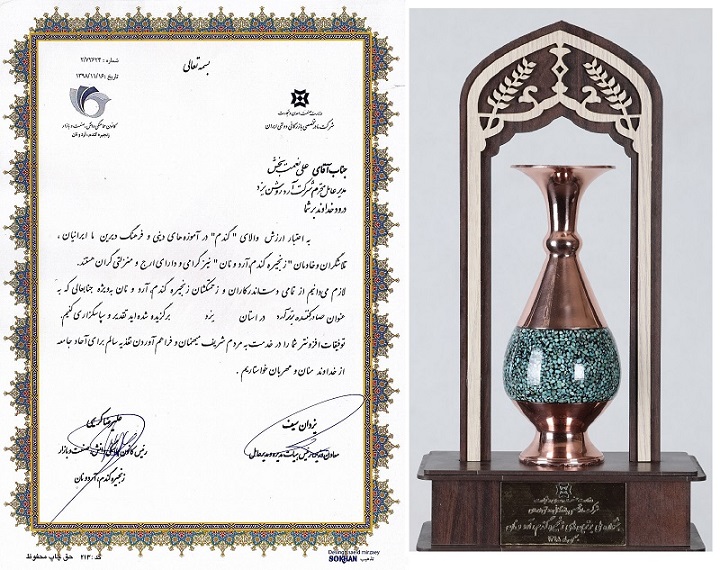 بسمه تعالی
شماره : ۹/۸۹۶۲۴
تاریخ : ۱۳۹۸/۱۱/۱۶
کانون هماهنگی دانش، صنعت و بازار
زنجیره گندم، آرد و نان
وزارت صنعت، معدن و تجارت
شرکت مادر تخصصی بازرگانی دولتی ایران
جناب آقای علی نعمت بخش
مدیر عامل محترم شرکت آرد روشن یزد
درود خداوند بر شما
به اعتبار ارزش والای "گندم" در آموزه های دینی و فرهنگ دیرین ما ایرانیان ،
تلاشگران و خادمان "زنجیره گندم، آرد و نان" نیز گرامی و دارای ارج و منزلتی گران هستند.
لازم می‌دانیم از تمامی دست‌اندرکاران و زحمتکشان زنجیره گندم، آرد و نان به‌ویژه جنابعالی که به
عنوان صادرکننده برتر آرد در استان یزد برگزیده شده‌اید تقدیر و سپاسگزاری کنیم.
توفیقات افزونتر شما را در خدمت به مردم شریف میهنمان و فراهم آوردن تغذیه سالم برای آحاد جامعه
از خداوند منان و مهربان خواستاریم .
یزدان سیف
معاون وزیر، رئیس هیات مدیره و مدیرعامل
علیرضا کریمی
رئیس کانون هماهنگی دانش، صنعت و بازار
زنجیره گندم، آرد و نان
کد: ۲۱۳ حق چاپ محفوظ
SOKHAN